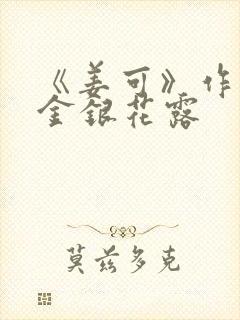 《姜可》作
金银花露
莫兹多克